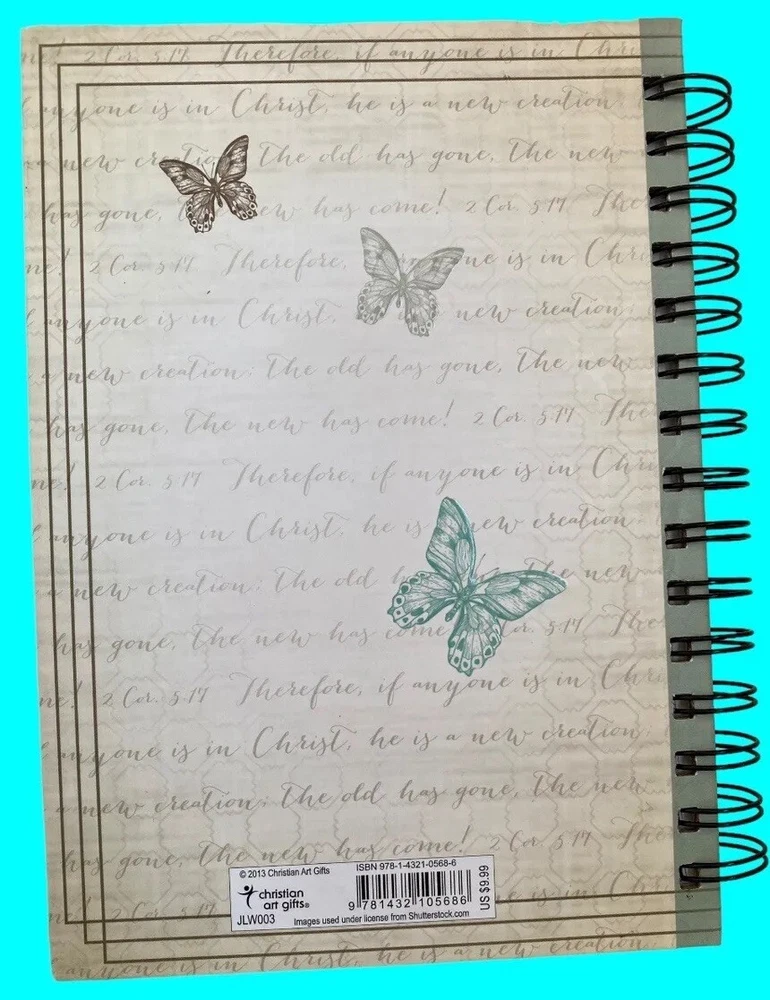 me! 2 Cor. 5:17 Therefore, if anyone is in Chri
anyone is in Christ, he is a new creation;
new creation; The old has gone, the new
has gone, new has come! 2 Cor. 5:17 The
me! 2 Cor. 5:17 Therefore, anyone is in Chri
anyone is in Christ, new creation;
a new creation; The old has gone, the new
has gone, The new has come! 2 Cor. 5:17 The
me! 2 Cor. 5:17 Therefore, if anyone is in Chri
anyone is in Christ, he is new creation;
new creation; The old new
has gone, the new has come Cor. 5:17 The
me! 2 Cor. 5:17 Therefore, if anyone is in Chri
anyone is in Christ, he is a new creation;
a new creation; The old has gone, the new
has gone, the new has come! 2 Cor. 5:17 The
is in Chri
anyone is in Christ, he is a new creation
© 2013 Christian Art Gifts
christian
art gifts®
JLW003
ISBN 978-1-4321-0568-6
9 781432 105686
US $9.99
Images used under license from Shutterstock.com